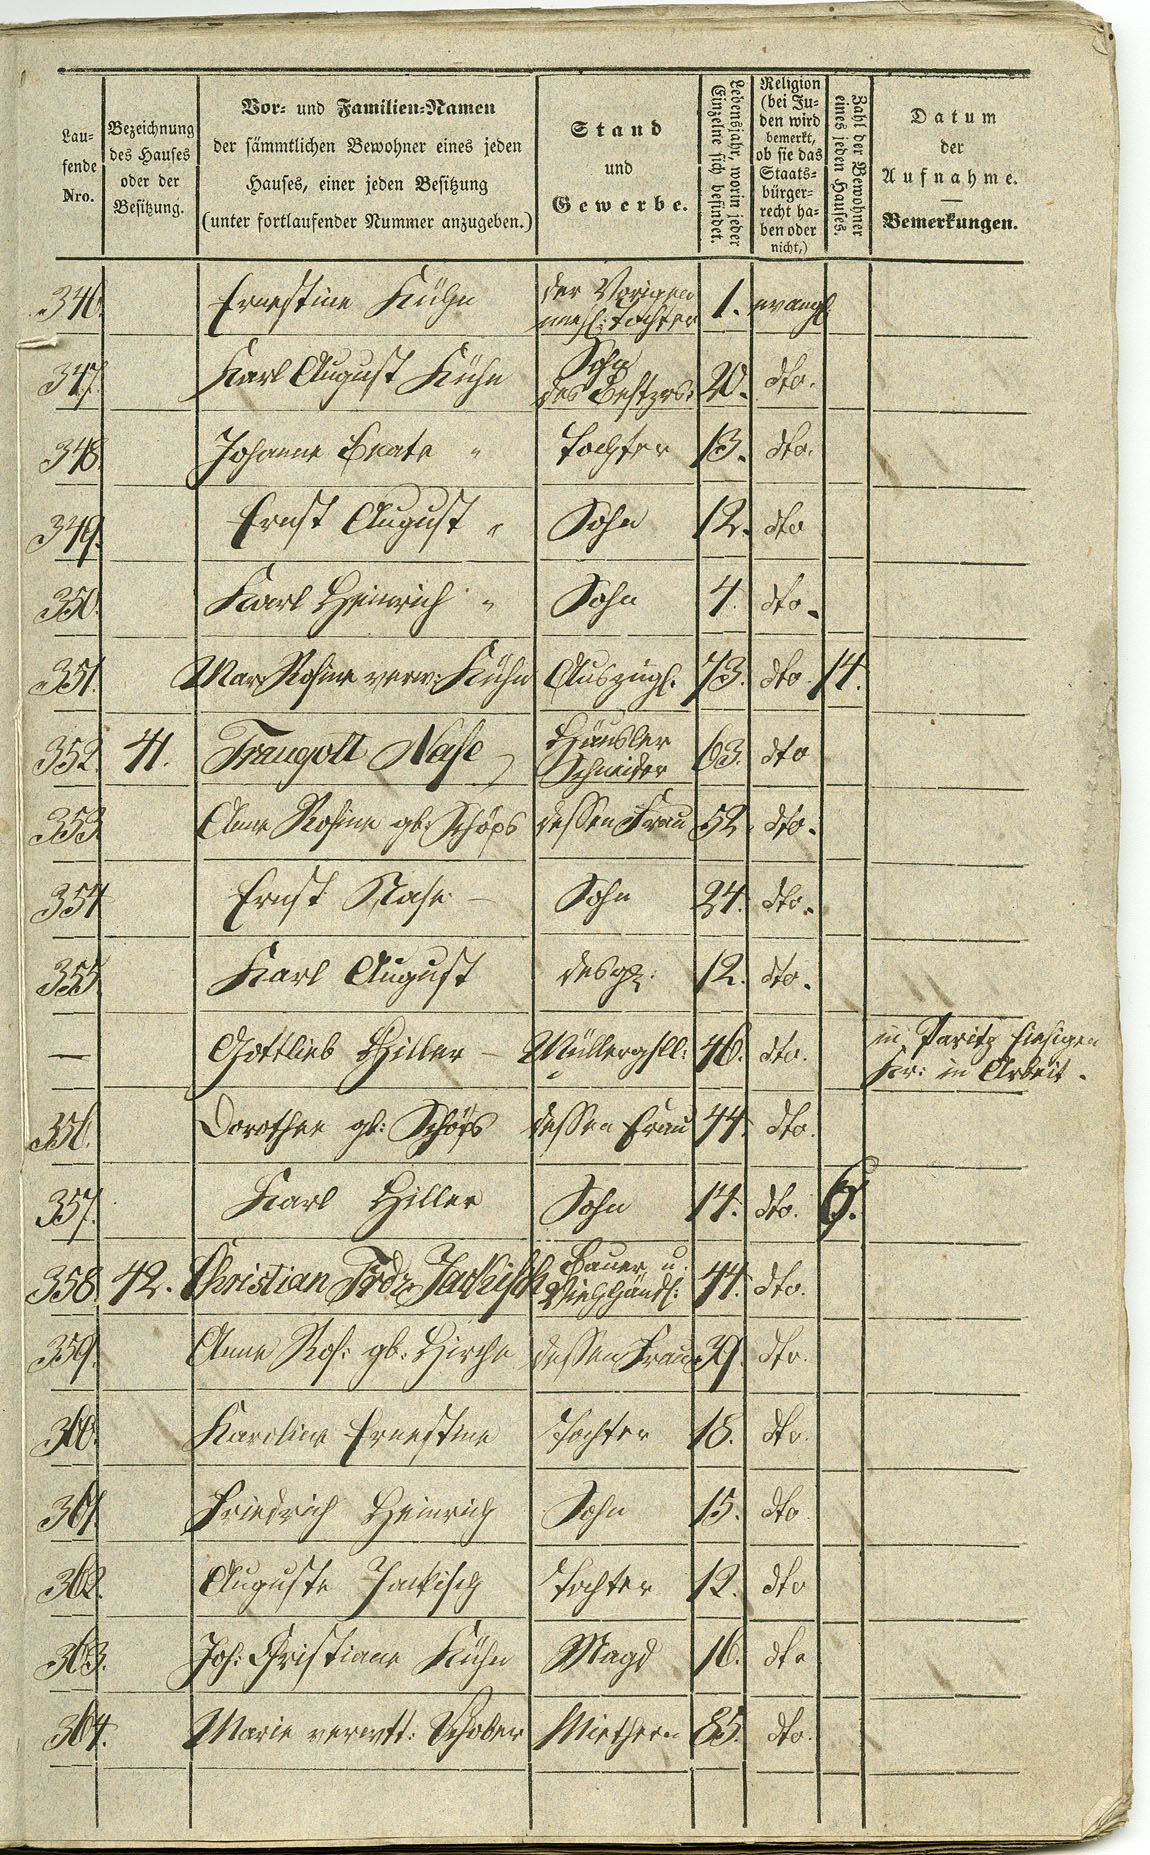 Lau-
fende
Nro.
Bezeichnung
des Hauses
oder der
Besitzung.
Vor- und Familien-Namen
der sämmtlichen Bewohner eines jeden
Hauses, einer jeden Besitzung
(unter fortlaufender Nummer anzugeben.)
Stand
und
Gewerbe.
Lebensjahr, worin jeder
Einzelne sich befindet.
Religion
(bei Ju-
den wird
bemerkt,
ob sie das
Staats-
bürger-
recht ha-
ben oder
nicht,)
Zahl der Bewohner
eines jeden Hauses.
Datum
der
Aufnahme.
Bemerkungen.
346. Ernestine Kühn der Vorigen unehl: Tochter 1. evangl.
347. Karl August Kühn Sohn des Besitzrs: 20. dto.
348. Johanne Beate " Tochter 13. dto.
349. Ernst August " Sohn 12. dto
350. Karl Heinrich " Sohn 4. dto.
351. Mar. Rosine verw: Kühn Auszügl. 73. dto. 14.
352. 41. Traugott Nase Häusler Schneider 63. dto
353. Anne Rosine gb: Schöps dessen Frau 52. dto.
354 Ernst Nase – Sohn 24. dto.
355. Karl August desgl. 12. dto.
— Gottlieb Hiller – Müllergsll: 46. dto. in Paritz hiesigen Kr: in Arbeit.
356. Dorothee gb: Schöps dessen Frau 44. dto.
357. Karl Hiller Sohn 14. dto. 6.
358. 42. Christian Frdr. Jackisch Bauer u. Viehhändl: 44. dto.
359. Anne Ros: gb: Hirche dessen Frau 39. dto.
360. Karoline Ernestine Tochter 18. dto.
361. Friedrich Heinrich Sohn 15. dto
362. Auguste Jackisch Tochter 12. dto
363. Joh: Christiane Kühn Magd 16. dto
364. Marie verwtt: Schober Mietherin 85. dto.